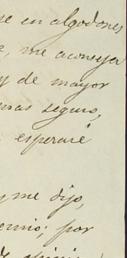 se en algodones
me aconseja
y de mayor
mas seguro,
esperaré
y me dijo,
por